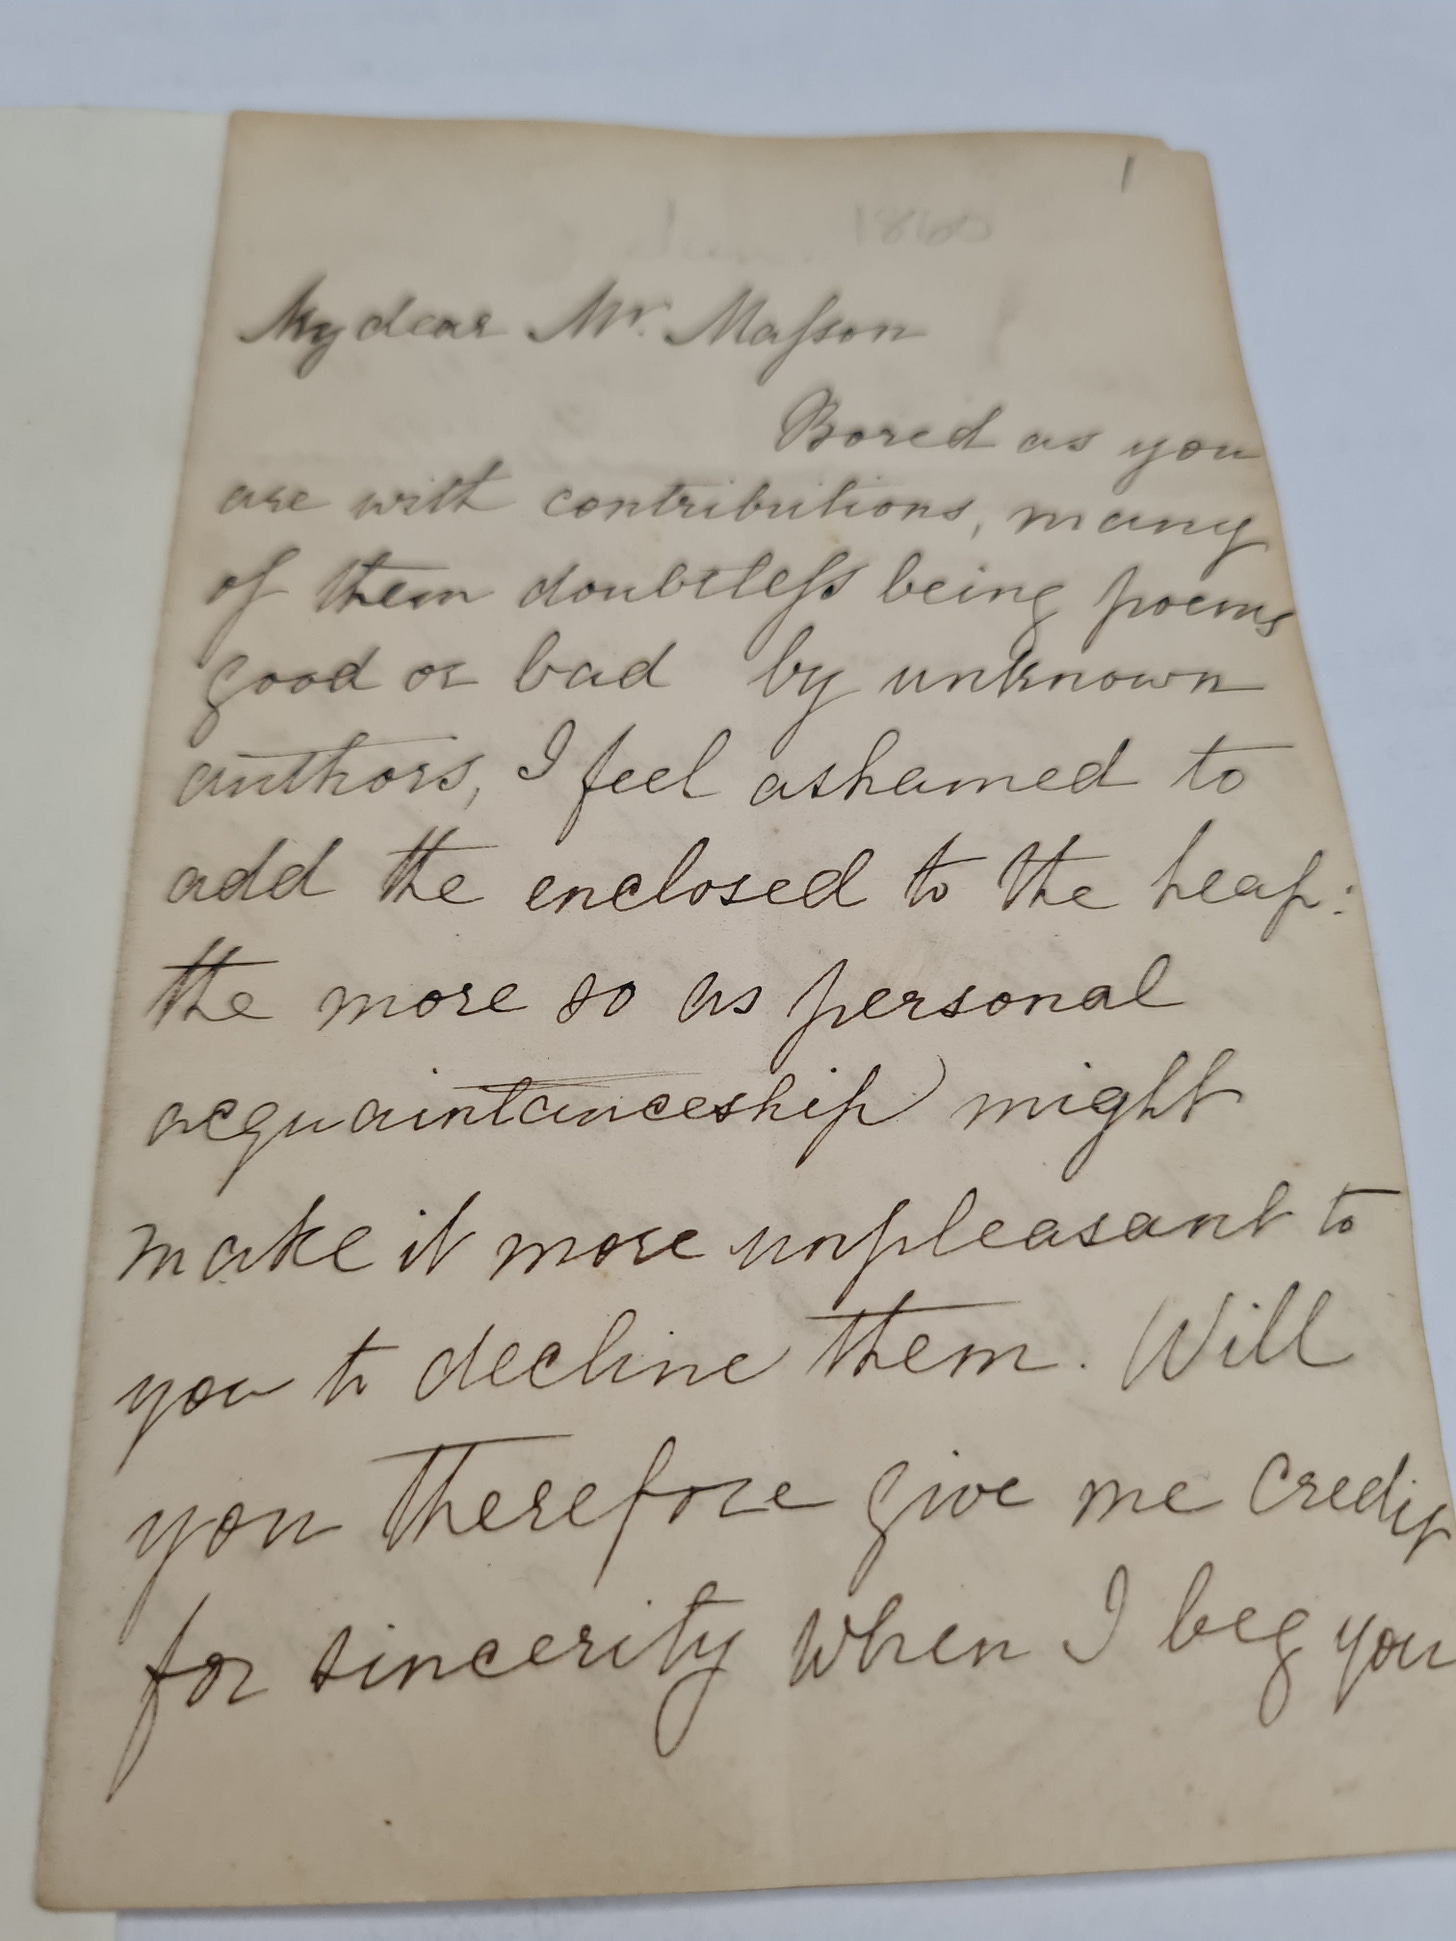 1
1860
My dear Mr. Maſson
Bored as you
are with contributions, many
of them doubtleſs being poems
good or bad by unknown
authors, I feel ashamed to
add the enclosed to the heap:
the more so as personal
acquaintanceship might
make it more unpleasant to
you to decline them. Will
you therefore give me credit
for sincerity when I beg you